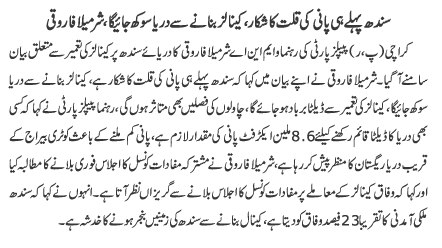 سندھ پہلے ہی پانی کی قلت کا شکار، کینالز بنانے سے دریا سوکھ جائیگا، شرمیلا فاروقی
کراچی (پ،ر) پیپلز پارٹی کی رہنما و ایم این اے شرمیلا فاروقی کا دریائے سندھ پر کینالز کی تعمیر سے متعلق بیان
سامنے آگیا۔ شرمیلا فاروقی نے اپنے بیان میں کہا کہ سندھ پہلے ہی پانی کی قلت کا شکار ہے، کینالز بنانے سے دریا
سوکھ جائیگا، کینالز کی تعمیر سے ڈیلٹا برباد ہو جائے گا، چاولوں کی فصلیں بھی متاثر ہوں گی، رہنما پیپلز پارٹی نے کہا کہ کسی
بھی دریا کا ڈیلٹا قائم رکھنے کیلئے 8.6 ملین ایکڑ فٹ پانی کی مقدار لازم ہے، پانی کم ملنے کے باعث کوٹری بیراج کے
قریب دریا ریگستان کا منظر پیش کر رہا ہے، شرمیلا فاروقی نے مشترکہ مفادات کونسل کا اجلاس فوری بلانے کا مطالبہ کیا
اور کہا کہ وفاق کینالز کے معاملے پر مفادات کونسل کا اجلاس بلانے سے گریزاں نظر آتا ہے۔ انہوں نے کہا کہ سندھ
ملکی آمدنی کا تقریبا 23 فیصد وفاق کو دیتا ہے، کینال بنانے سے سندھ کی زمینیں بنجر ہونے کا خدشہ ہے۔